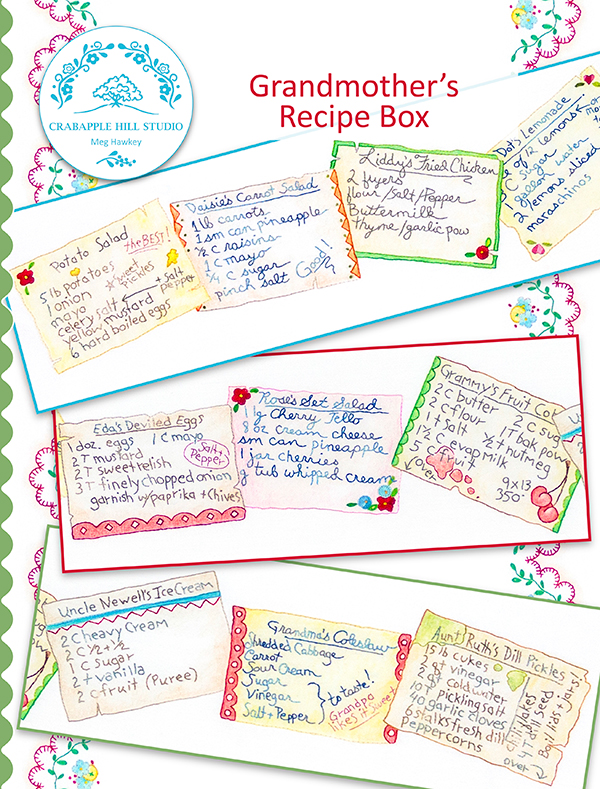 CRABAPPLE HILL STUDIO
Meg Hawkey
Grandmother's
Recipe Box
Potato Salad
the BEST!
5 lb potatoes
1 onion
sweet
pickles
mayo
celery salt
+ salt
pepper
yellow mustard
6 hard boiled eggs
Daisie's Carrot Salad
1 lb carrots
1 sm can pineapple
½ C raisins
1 C mayo
¼ C sugar
pinch salt
Good!
Liddy's Fried Chicken
2 fryers
flour/salt/Pepper
Buttermilk
thyme/garlic pow
Dot's Lemonade
of 12 lemons
1 C sugar
gallon water
2 lemons sliced
maraschinos
Eda's Deviled Eggs
1 doz. eggs 1 C mayo
2 T mustard
2 T sweet relish
3 T finely chopped onion
garnish w/paprika + Chives
Salt +
Pepper
Rose's Set Salad
1 lg Cherry Jello
8 oz cream cheese
sm can pineapple
1 jar cherries
lg tub whipped cream
Grammy's Fruit
2 C butter
2 C sug
2 C flour
1 T bak pow
1 t salt
½ t nutmeg
1½ C evap Milk
fruit
9x13
350°
over
Uncle Newell's Ice Cream
2 C heavy Cream
2 C ½ + ½
1 C sugar
2 t vanilla
2 C fruit (Puree)
Grandma's Coleslaw
Shredded Cabbage
Carrot
Sour Cream
Sugar
Vinegar
Salt + Pepper
to taste!
Grandpa
likes it Sweet
Aunt Ruth's Dill Pickles
15 lb cukes
2 qt vinegar
2 qt cold water
10 T pickling salt
40 garlic cloves
6 stalks fresh dill
Peppercorns
chili flakes
4 T dill seed
Boil lids + jars!
over